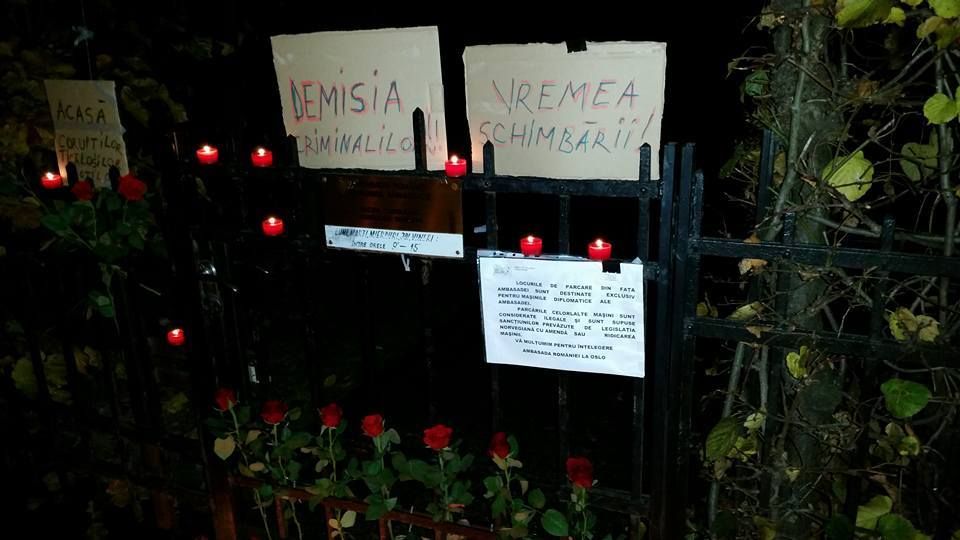 ACASĂ
CORUPȚILOR
DEMISIA
CRIMINALILOR!!
VREMEA
SCHIMBĂRII!
LUNI, MARȚI, MIERCURI, JOI, VINERI:
ÎNTRE ORELE 9-15
LOCURILE DE PARCARE DIN FAȚA
AMBASADEI SUNT DESTINATE EXCLUSIV
PENTRU MAȘINILE DIPLOMATICE ALE
AMBASADEI.
PARCĂRILE CELORLALTE MAȘINI SUNT
CONSIDERATE ILEGALE ȘI SUNT SUPUSE
SANCȚIUNILOR PREVĂZUTE DE LEGISLAȚIA
NORVEGIANĂ CU AMENDĂ SAU RIDICAREA
MAȘINII.
VĂ MULȚUMIM PENTRU ÎNȚELEGERE
AMBASADA ROMÂNIEI LA OSLO